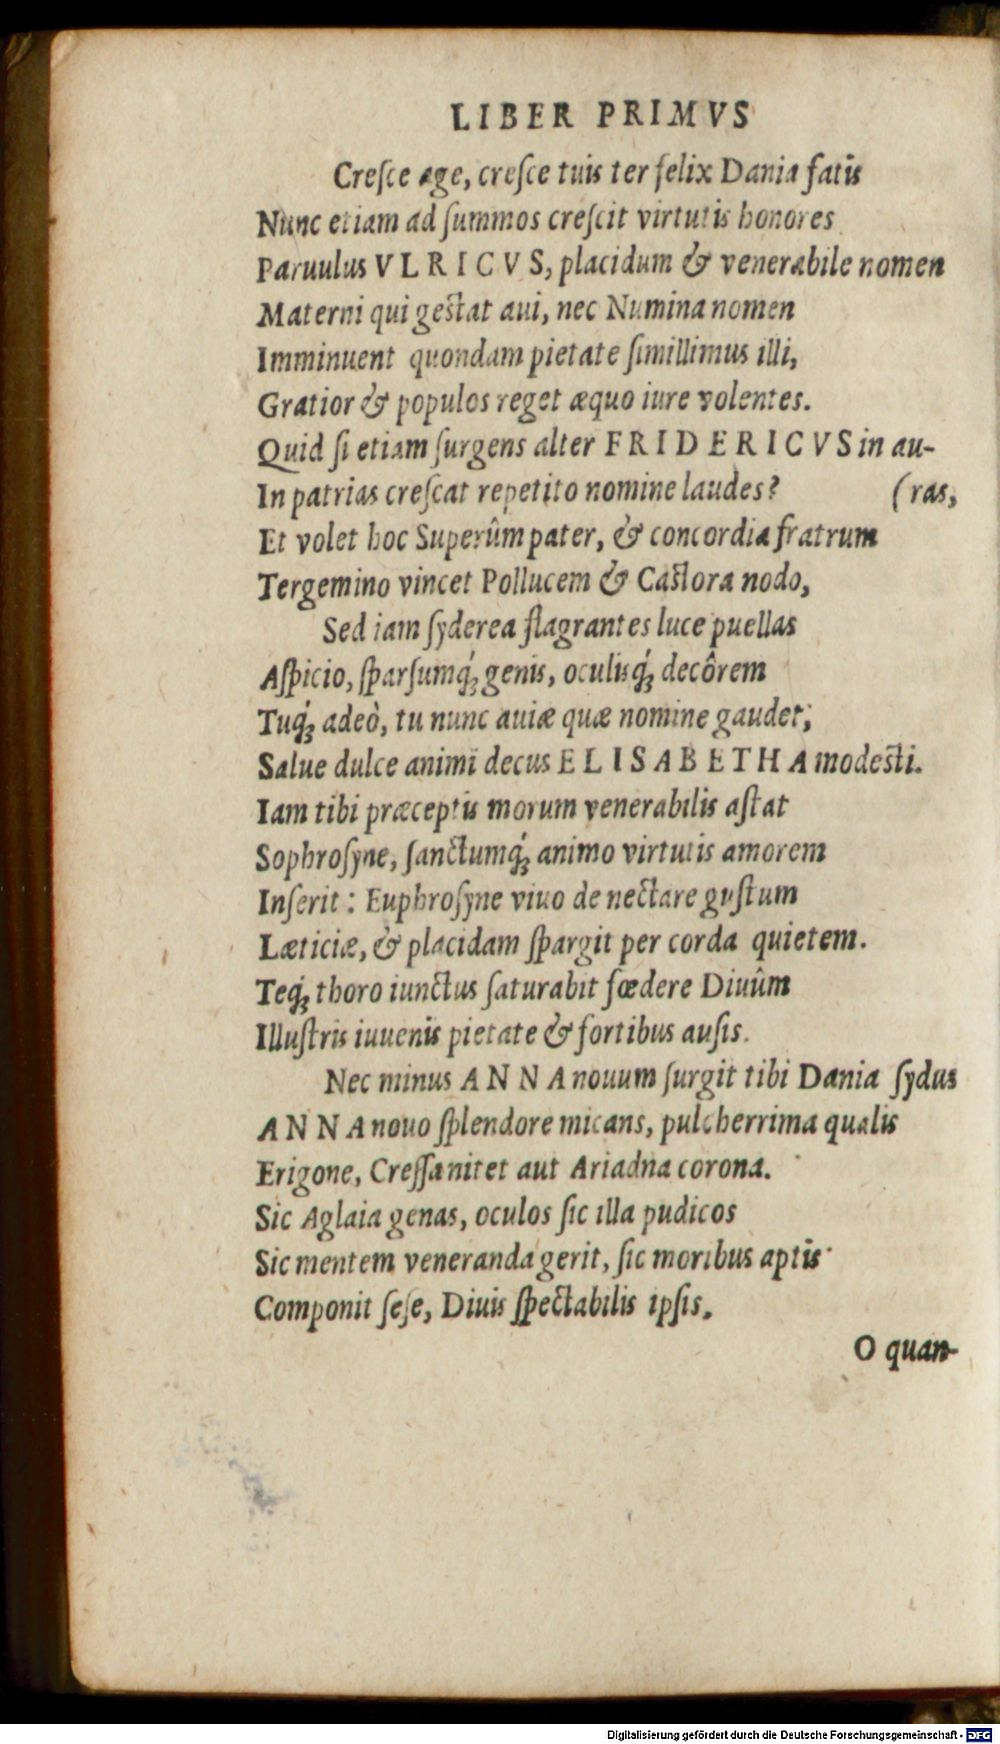 LIBER PRIMVS
Creſce age, creſce tuis ter felix Dania fatis
Nunc etiam ad ſummos creſcit virtutis honores
Paruulus VLRICVS, placidum & venerabile nomen
Materni qui geſtat aui, nec Numina nomen
Imminuent quondam pietate ſimillimus illi,
Gratior & populos reget æquo iure volentes.
Quid ſi etiam ſurgens alter FRIDERICVS in au-
In patrias creſcat repetito nomine laudes? (ras,
Et volet hoc Superûm pater, & concordia fratrum
Tergemino vincet Pollucem & Caſtora nodo,
Sed iam ſyderea flagrantes luce puellas
Aſpicio, ſparſumq́; genis, oculisq́; decôrem
Tuq́; adeò, tu nunc auiæ quæ nomine gaudet;
Salue dulce animi decus ELISABETHA modeſti.
Iam tibi præceptis morum venerabilis aſtat
Sophroſyne, ſanctumq́; animo virtutis amorem
Inſerit: Euphroſyne viuo de nectare guſtum
Læticiæ, & placidam ſpargit per corda quietem.
Teq́; thoro iunctus ſaturabit fœdere Diuûm
Illuſtris iuuenis pietate & fortibus auſis.
Nec minus ANNA nouum ſurgit tibi Dania ſydus
ANNA nouo ſplendore micans, pulcherrima qualis
Erigone, Creſſa nitet aut Ariadna corona.
Sic Aglaia genas, oculos ſic illa pudicos
Sic mentem veneranda gerit, ſic moribus aptis
Componit ſeſe, Diuis ſpectabilis ipſis.
O quan-
Digitalisierung gefördert durch die Deutsche Forschungsgemeinschaft - DFG